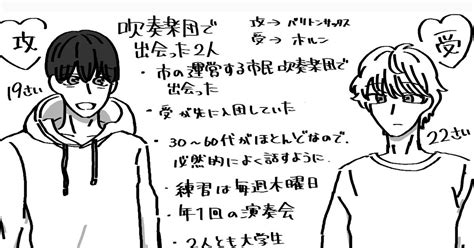 攻
19さい
吹奏楽団で
出会った2人
攻→バリトンサックス
受→ホルン
・市の運営する市民吹奏楽団で
出会った
・受が先に入団していた
・30～60代がほとんどなので、
必然的によく話すように
・練習は毎週木曜日
・年1回の演奏会
・2人とも大学生
受
22さい